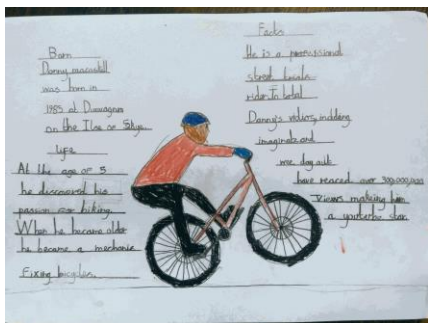 Born
Danny macaskill
was born in
1985 at Dunvegan
on the Isle of Skye
Life
At the age of 5
he discovered his
passion for biking.
When he became older
he became a mechanic
Fixing bicycles.
Facts
He is a professional
street trials
rider In total
Danny's videos, including
imaginate and
wee day out
have reached over 300,000,000
Views making him
a youtube star.